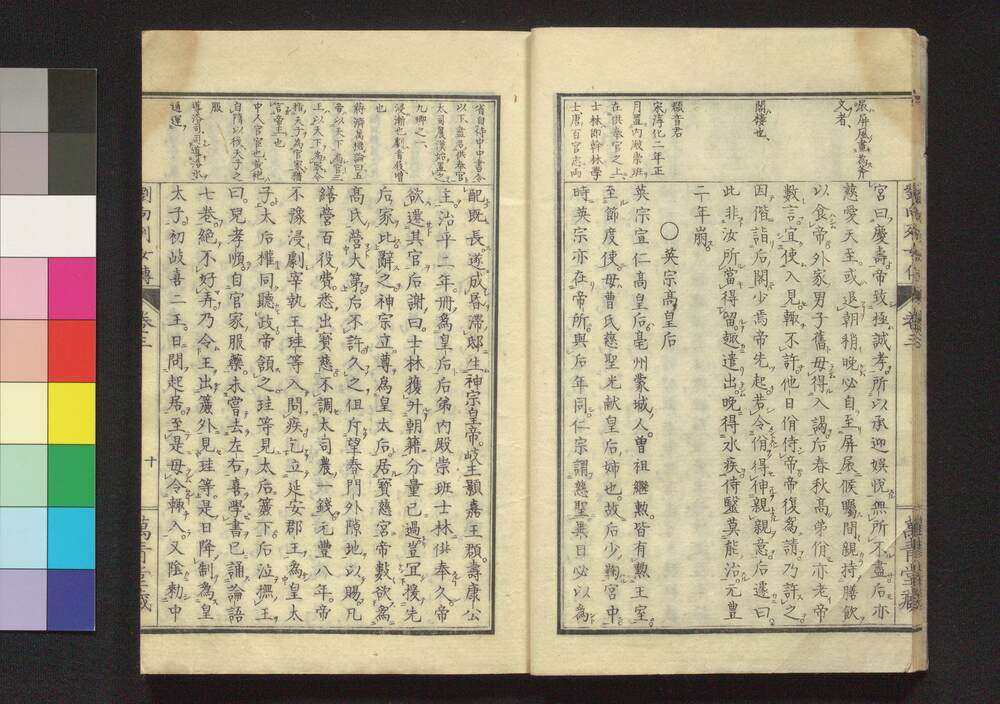 宮曰慶壽帝致極誠孝所以承迎娛悅無所不盡后亦
慈愛天至或退朝稍晚必自至屏扆候矚間親持膳飲
以食帝外家男子舊毋得入謁后春秋高弟佾亦老帝
數言宜使入見輙不許他日佾侍帝帝復爲請乃許之
因偕詣后閤少焉帝先起若令佾得伸親親意后遽曰
此非汝所當得留趣遣出晚得水疾侍醫莫能治元豐
二年崩
〇英宗高皇后
英宗宣仁高皇后亳州蒙城人曾祖繼勲皆有勲王室
至節度使母曹氏慈聖光獻皇后姉也故后少鞠宮中
時英宗亦在帝所與后年同仁宗謂慈聖異日必以爲
屏風畫爲斧
文者
閤樓也
類音君
宋淳化二年正
月置內殿崇班
在供奉官之上
士林即幹林學
士唐百官志內
配既長遂成昬濮邸生神宗皇帝岐王顥嘉王頵壽康公
主治平二年冊爲皇后后弟內殿崇班士林供奉久帝
欲遷其官后謝曰士林獲升朝籍分量已過豈冝援先
后家比辭之神宗立尊爲皇太后居寳慈宮帝數欲爲
高氏營大第后不許久之但斥望春門外隙地以賜凡
繕營百役費悉出寳慈不調太司農一錢元豐八年帝
不豫浸劇宰執王珪等入問疾乞立延安郡王爲皇太
子太后權同聽政帝頷之珪等見太后簾下后泣撫王
曰兒孝順自官家服藥未嘗去左右喜學書已誦論語
七卷絕不好弄乃令王出簾外見珪等是日降制爲皇
太子初岐喜二王日問起居至是毋令輙入又陰勑中
省自待中中書令
以下盖名供奉官
太司農漢始置之
九卿之一
浸漸也劇音屐增
也
蔣濟萬機論曰五
帝以天下爲官三
王以天下爲家今
稱天子爲官家猶
言帝王也
中人官官也黃袍
自隋以後天子之
服
導洛司司導洛水
通運
劉向列女傳
卷三
十
萬青堂藏